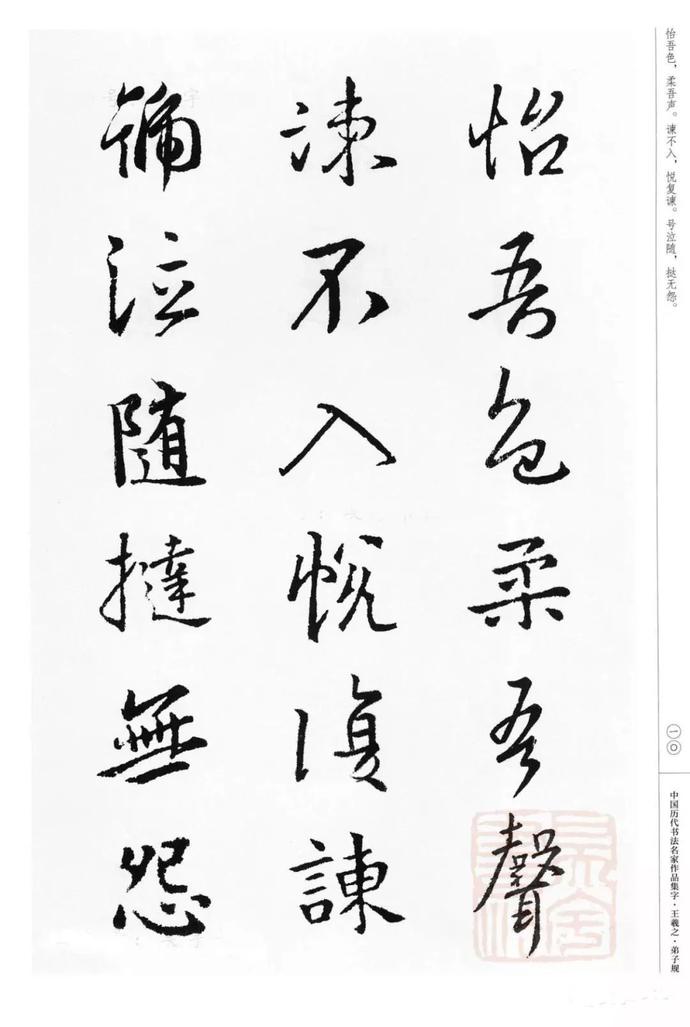 怡吾色，柔吾声。谏不入，悦复谏。号泣随，挞无怨。
怡吾色柔吾聲
諫不入悅復諫
號泣随撻無怨
一〇
中国历代书法名家作品集字·王羲之·弟子规